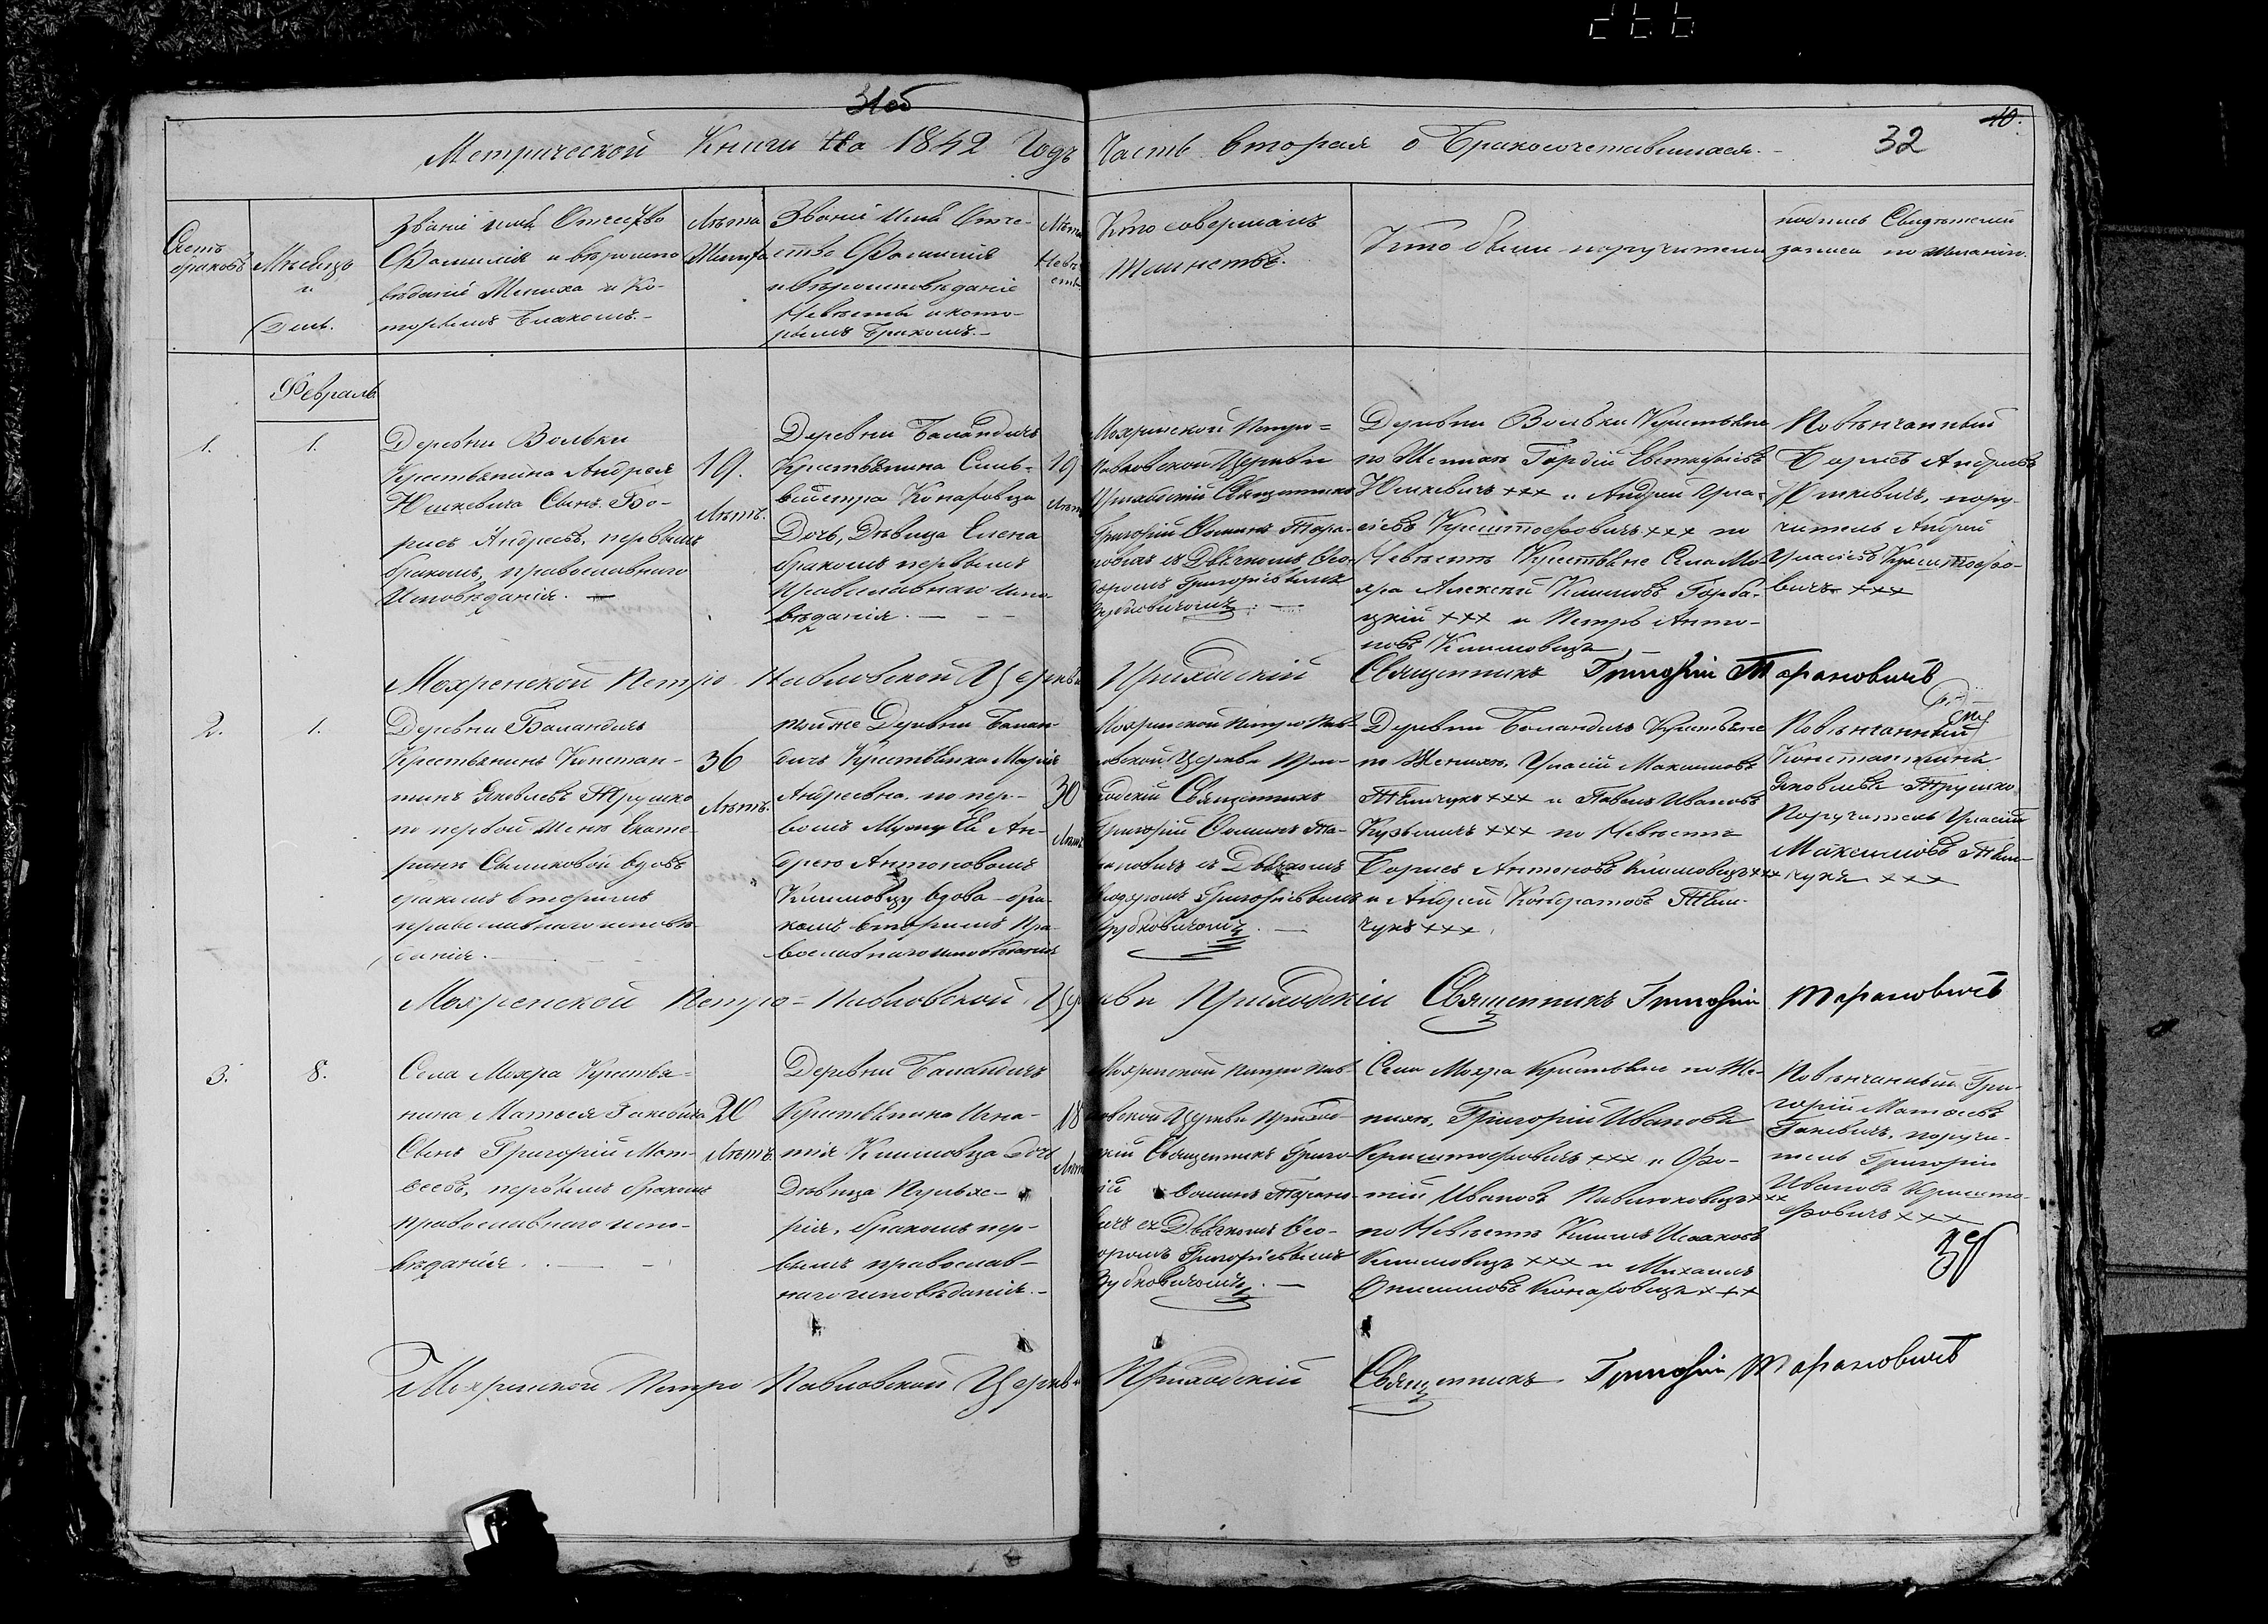 31об
Метрической Книги На 1842 Годъ Часть вторая о Бракосочетавшихся.
32
10.
Счетъ браковъ
Мѣсяцъ
и
День.
Званіе имя Отчество
Фамилія и вѣроиспо
вѣданіе Жениха и Ко-
торымъ Бракомъ.
Лѣта
Жениха
Званіе Имя Отче-
ство Фамилія
и вѣроисповѣданіе
Невѣсты и кото-
рымъ Бракомъ.
Лѣта
Невѣ-
сты.
Кто совершалъ
Таинство.
Кто были поручители
подпись Свидѣтелей
записи по Желанію.
Февраль
1.
1.
Деревни Вольки
Крестьянина Андрея
Юшкевича Сынъ Бо-
рисъ Андреевъ, первымъ
бракомъ, православнаго
Исповѣданія.
19.
Лѣтъ.
Деревни Баландичъ
Крестьянина Силь-
вестра Конаховца
Дочь, Дѣвица Елена
бракомъ первымъ
Православнаго испо-
вѣданія.
19
Лѣтъ
Мохринской Петро=
павловской Церкви
Приходскій Священникъ
Григорій Фоминъ Тара-
новичъ съ Дьячкомъ Ѳео-
доромъ Григорьевымъ
Зубковичомъ.
Деревни Вольки Крестьяне
по Женихѣ Гордій Евстафіевъ
Юшкевичъ ххх и Андрей Ула-
сіевъ Криштофовичъ ххх по
Невѣстѣ Крестьяне Села Мо-
хра Алексей Климовъ Горба-
цкій ххх и Петръ Анто-
новъ Климовецъ
Повѣнчанный
Борисъ Андреевъ
Юшкевичъ, пору-
читель Андрей
Уласіевъ Криштофо-
вичъ ххх
Мохренской Петро-Павловской Церкви Приходскій Священникъ Григорій Тарановичъ
2.
1.
Деревни Баландичъ
Крестьянинъ Констан-
тинъ Яковлевъ Трушко
по первой Женѣ Екате-
ринѣ вдовъ
бракомъ вторымъ
православнаго исповѣ-
данія.
36
Лѣтъ.
тойже Деревни Балан-
дичъ Крестьянка Марія
Андреевна, по пер-
вомъ Мужу Ея Ан-
дрею Антоновомъ
Климовцу вдова бра-
комъ вторымъ Пра-
вославнаго исповѣданія
30
Лѣтъ
Мохринской Петро Пав-
ловской Церкви При-
ходскій Священникъ
Григорій Фоминъ Та-
рановичъ съ Дьячкомъ
Ѳеодоромъ Григорьевымъ
Зубковичомъ.
Деревни Баландичъ Крестьяне
по Женихѣ, Уласій Максимовъ
ххх и Павелъ Ивановъ
Кузьмичъ ххх по Невѣстѣ
Борисъ Антоновъ Климовецъ ххх
и Андрей Кондратовъ
ххх.
Повѣнчанный
Константинъ
Яковлевъ Трушко
Поручитель Уласій
Максимовъ
ххх
Мохренской Петро=Павловской Церкви Приходскій Священникъ Григорій Тарановичъ
3.
8.
Села Мохра Крестья=
нина Матѳея Гацевича
Сынъ Григорій Мат-
ѳеевъ, первымъ бракомъ
православнаго испо-
вѣданія.
20
Лѣтъ.
Деревни Баландичъ
Крестьянина Игна-
тія Климовца дочь
Дѣвица Пульхе-
рія, бракомъ пер-
вымъ православ-
наго исповѣданія.
18
Лѣтъ
Мохринской Петро Пав-
ловской Церкви Приход-
скій Священникъ Григо-
рій Фоминъ Тарано-
вичъ съ Дьячкомъ Ѳео-
доромъ Григорьевымъ
Зубковичомъ.
Села Мохра Крестьяне по Же-
нихѣ, Григорій Ивановъ
Криштофовичъ ххх и Фо-
тій Ивановъ Павлюковецъ ххх
по Невѣстѣ Климъ Исааковъ
Климовецъ ххх и Михаилъ
Онисимовъ Конаховецъ ххх
Повѣнчанный Гри-
горій Матѳеевъ
Гацевичъ, поручи-
тель Григорій
Ивановъ Кришто-
фовичъ ххх
Мохринской Петро Павловской Церкви Приходскій Священникъ Григорій Тарановичъ